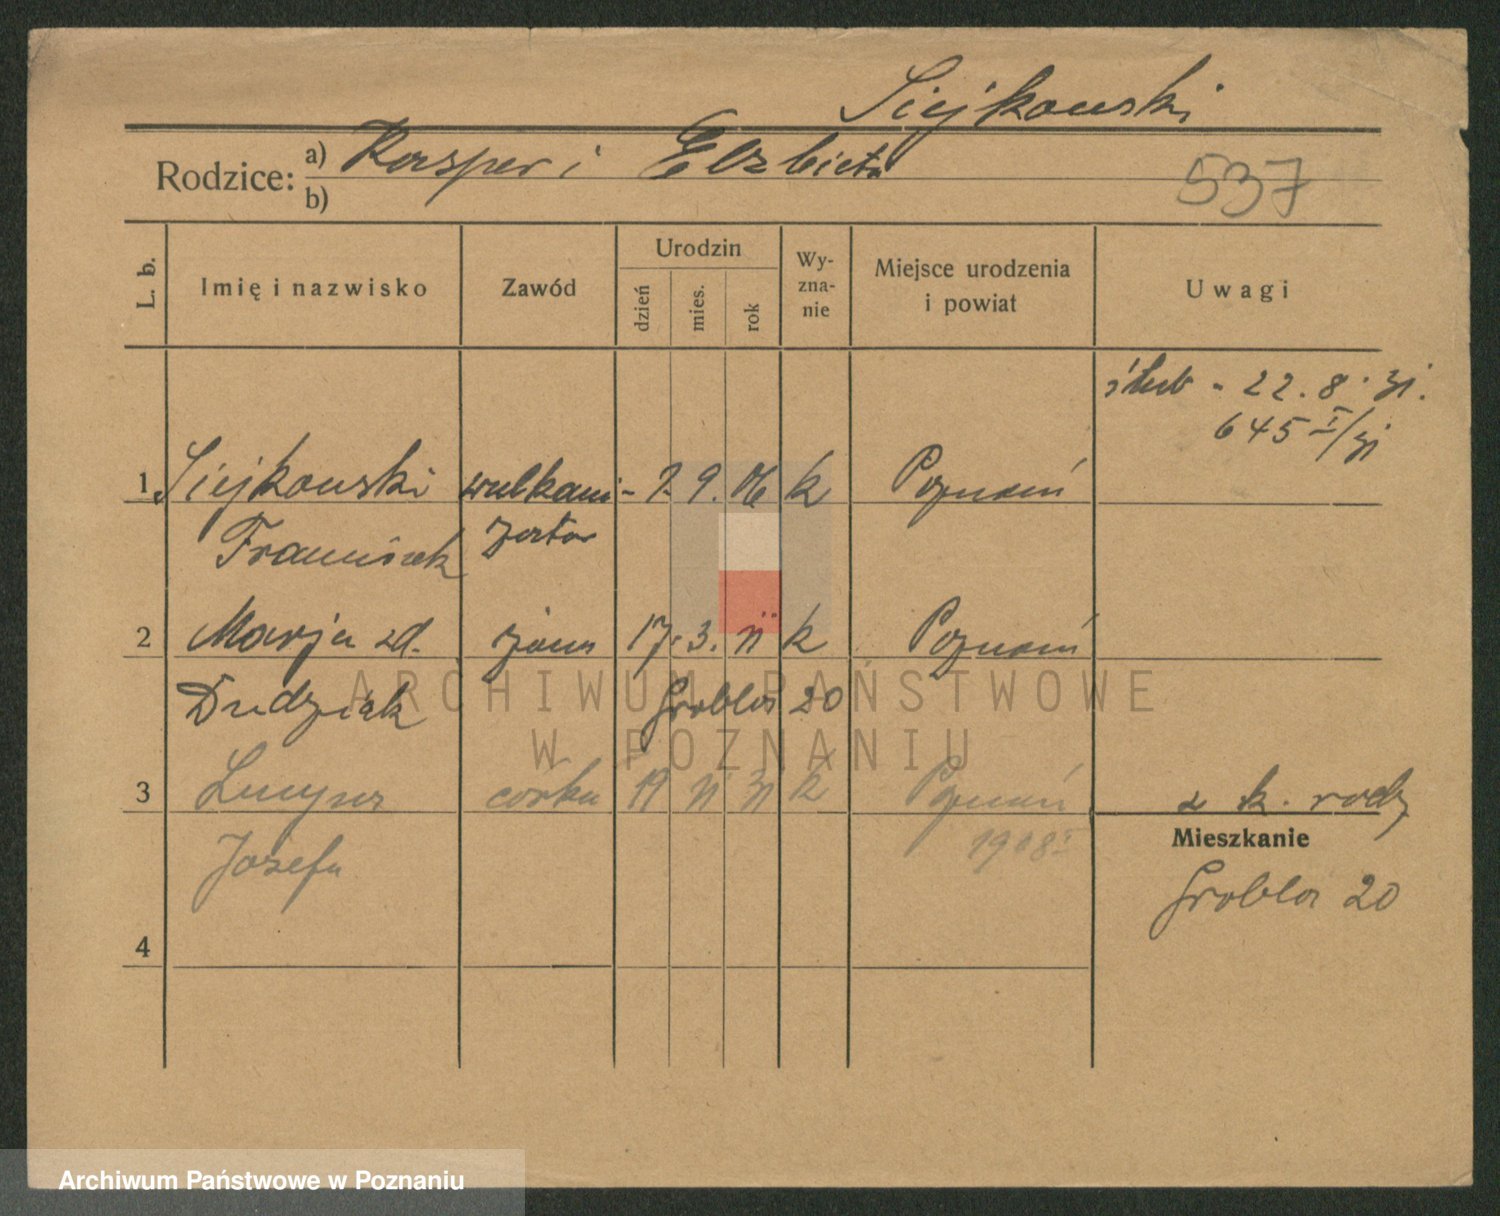 Siejkowski
Rodzice: a) Kasper i Elżbieta
b)
537
L. b. Imię i nazwisko Zawód Urodzin dzień mies. rok Wy-zna-nie Miejsce urodzenia i powiat Uwagi
ślub - 22. 8. 31.
645 I/31
1 Siejkowski wulkani- 9. 06 k Poznań
Franciszek zator
2 Marja zd. żona 17. 3. 11 k Poznań
Dudziak Grobla 20
ARCHIWUM PAŃSTWOWE
W POZNANIU
3 Lucyna córka 19 11 31 k Poznań k. rodz
Józefa
Mieszkanie
Grobla 20
4
Archiwum Państwowe w Poznaniu